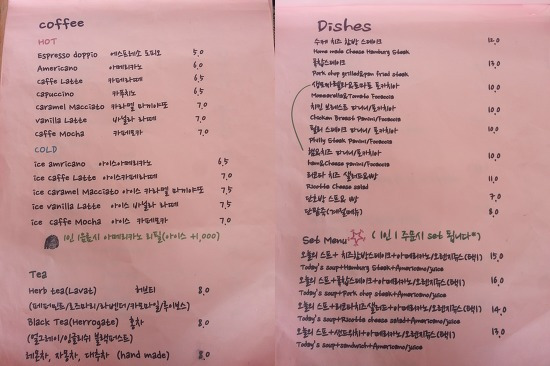 coffee
HOT
Espresso doppio 에스프레소 도피오 5.0
Americano 아메리카노 6.0
caffe Latte 카페라떼 6.5
capuccino 카푸치노 6.5
caramel Macciato 카라멜 마끼아또 7.0
vanilla Latte 바닐라 라떼 7.0
caffe Mocha 카페모카 7.0
COLD
ice americano 아이스아메리카노 6.5
ice caffe Latte 아이스카페라떼 7.0
ice caramel Macciato 아이스 카라멜 마끼아또 7.5
ice vanilla Latte 아이스 바닐라 라떼 7.5
ice caffe Mocha 아이스 카페모카 7.0
1인1음료시 아메리카노 리필(아이스 +1,000)
Tea
Herb tea(Lavat) 허브티 8.0
(페퍼민트/로즈마리/라벤더/카모마일/루이보스)
Black Tea(Herrogate) 홍차 8.0
(얼그레이/잉글리쉬 블랙퍼스트)
레몬차, 자몽차, 대추차 (hand made) 8.0
Dishes
수제 치즈 함박 스테이크
Home made Cheese Hamburg Steak
폭찹스테이크 13.0
Pork chop grilled&pan fried steak
생모짜렐라&토마토 포카치아 10.0
Mozzarella&Tomato Foccacia
치킨 브레스트 파니니/포카치아 10.0
Chicken Breast Panini/Foccacia
필리 스테이크 파니니/포카치아 10.0
Philly Steak Panini/Foccacia
햄&치즈 파니니/포카치아 10.0
ham&Cheese panini/Foccacia
리코타 치즈 샐러드&빵 11.0
Ricotta Cheese salad
단호박 스프&빵 7.0
단팥죽(계절메뉴) 8.0
Set Menu (1인 1 주문시 set 됩니다*)
오늘의 스프+치즈함박스테이크+아메리카노/오렌지쥬스(택1) 15.0
Today's soup+Hamburg Steak+Americano/juice
오늘의 스프+폭찹스테이크+아메리카노/오렌지쥬스(택1) 16.0
Today's soup+Pork chop steak+Americano/juice
오늘의 스프+리코타치즈샐러드+아메리카노/오렌지쥬스(택1) 14.0
Today's soup+Ricotta cheese salad+Americano/juice
오늘의 스프+샌드위치+아메리카노/오렌지쥬스(택1) 13.0
Today's soup+sandwich+Americano/juice